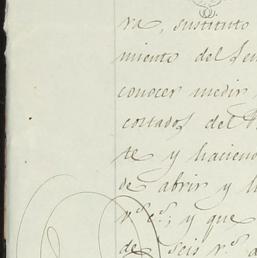 ra, sustituto
miento del Sen
conocer medir
cortados del
te y haciend
de abrir y
r.s c.s; y que
de seis r.s a